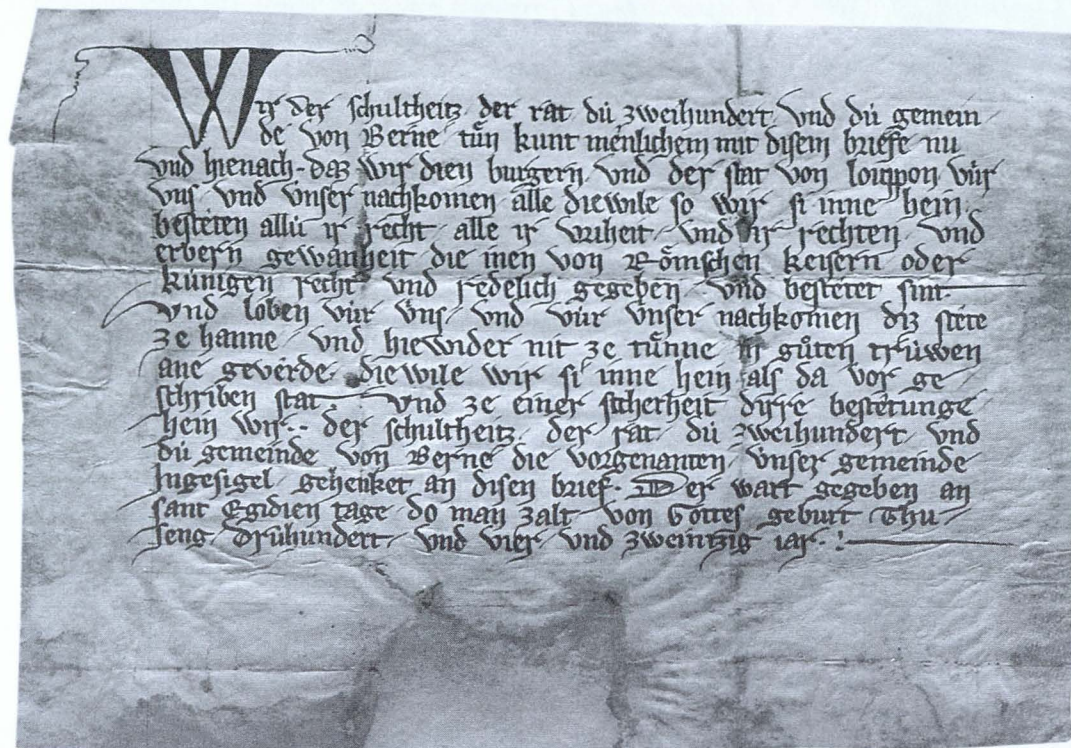 Wir der schultheitz der rat dú zweihundert und dú gemein
de von Berne tůn kunt menlichem mit disem briefe nu
und hienach. daz wir dien burgern und der stat von louppon vúr
vns und vnser nachkomen alle diewile so wir si inne hein.
besteten allú ir recht alle ir vriheit und ir rechten und
erbern gewanheit die inen von Rômschen keisern oder
kúnigen recht und redelich gegeben und bestetet sint.
Vnd loben vúr úns und vúr únser nachkomen diz stete
ze hanne und hiewider nit ze tůnne in gůten trúwen
ane geverde. diewile wir si inne hein als da vor ge
schriben stat. Vnd ze einer sicherheit dirre bestetunge
hein wir.. der schultheitz der rat dú zweihundert und
dú gemeinde von Berne die vorgenanten únser gemeinde
Ingesigel gehenket an disen brief. Der wart gegeben an
sant Egidien tage do man zalt von Gottes geburt Thu
seng drúhundert und vier und zweintzig iar. :